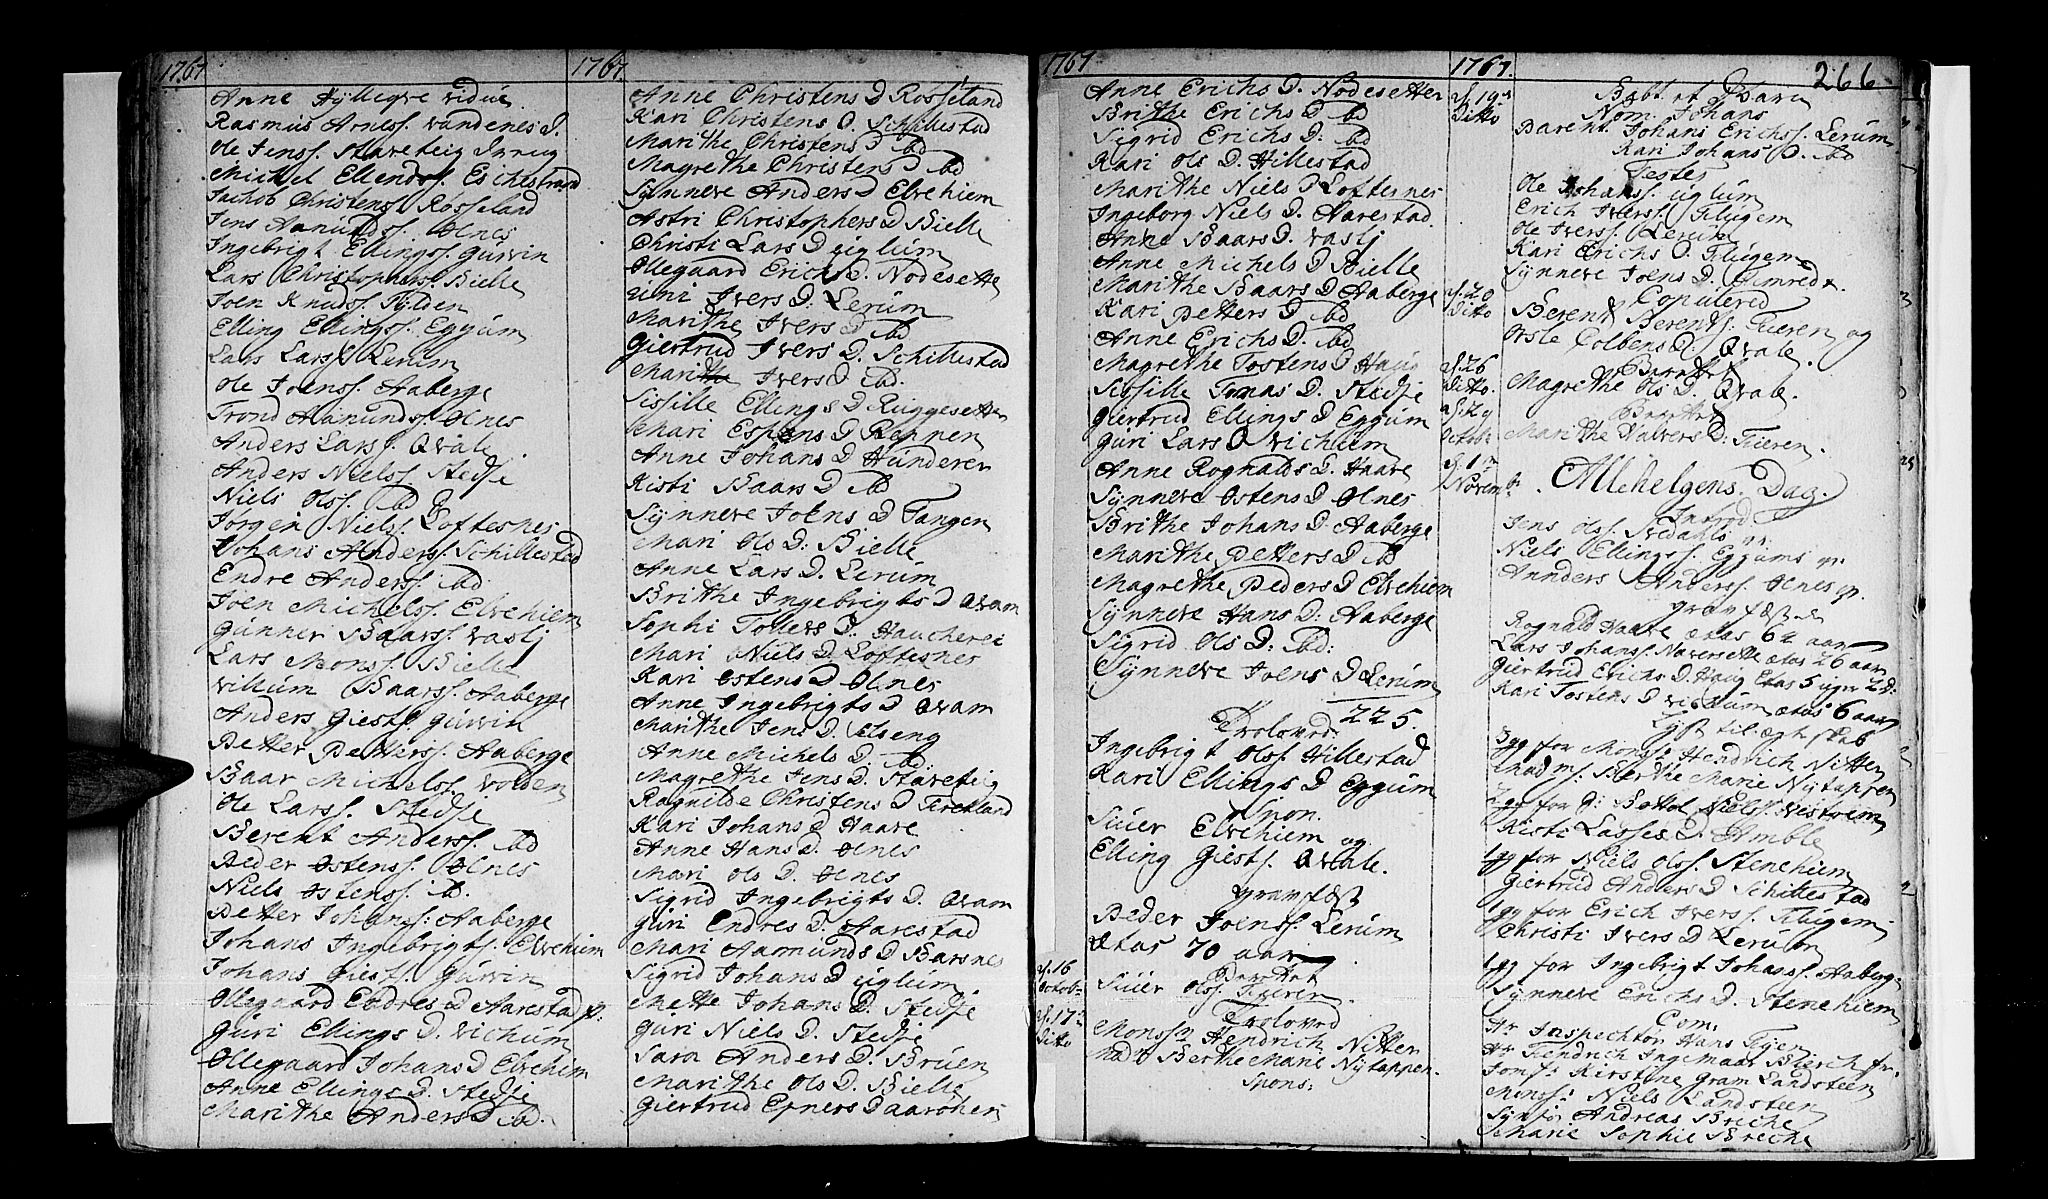 1767
Anne Hyllegre vidue
Rasmus Arness. vandenes d.
Ole Jenss. Stareteig
Michel Ellends. Eschestrand
Jachob Christens. Rosseland
Jens Aamunds. Olnes
Ingebrigt Ellingss. Gurvin
Lars Christophers. Bielle
Joen Knudss. Sylden
Elling Ellingss. Eggum
Lars Larss. Lerum
Ole Joenss. Aaberge
Trond Aamunds. Olnes
Anders Larss. Qvale
Anders Nielss. Stedje
Niels Olss. ibd
Jørgen Nielss. Loftesnes
Johans Anderss. Schillestad
Endre Anderss. ibd
Joen Michelss. Elvehiem
Gunner Baarss. vaslj
Lars Monss. Bielle
Villum Baarss. Aaberge
Anders Giests. Gurvin
Petter Petterss. Aaberge
Baar Michelss. volden
Ole Larss. Stedje
Berent Anderss. ibd
Peder Ostenss. Olnes
Niels Ostenss. ib.
Petter Johanss. Aaberge
Johans Ingebrigts. Elvehiem
Johans Giests. Gurvin
Ollegaard Endres D Aarestad
Guri Ellings D. vichum
Ollegaard Johans D Elvehiem
Anne Ellings D. Stedje
Marithe Anders D ibd.
1767.
Anne Christens D Rosseland
Kari Christens D. Schillestad
Marithe Christens D ibd
Magrethe Christens D ibd
Synneve Anders D Elvehiem
Astri Christophers D Bielle
Christi Lars D uglum
Ollegaard Erichs D. Nodesette
Uni Ivers D. Lerum
Marithe Ivers D ibd
Giertrud Ivers D. Schillestad
Mari Ivers D ibd.
Sissille Ellings D Ruggesette
Mari Espens D Reppen
Anne Johans D Hunderen
Kisti Baars D ibd
Synneve Joens D Tangen
Mari Ols D. Bielle
Anne Lars D. Lerum
Brithe Ingebrigts D Qvam
Sophi Tollevs D. Haucherei
Mari Niels D Loftesnes
Kari Ostens D Olnes
Anne Ingebrigts D Qvam
Marithe Jens D. Elseng
Anne Michels D. ibd.
Magrethe Jens D. Stareteig
Ragnilde Christens D Firckland
Kari Johans D Haave
Anne Hans D. Olnes
Mari Ols D. Olnes
Sigrid Ingebrigts D. Qvam
Guri Endres D. Aarestad
Mari Aamunds D Barsnes
Sigrid Johans D uglum
Mette Johans D. Stedje
Guri Niels D. Stedje
Sara Anders D. Bruen
Marithe Ols D. Bielle
Giertrud Epners D
1767
Anne Erichs D. Nodesetter
Brithe Erichs D ibd
Sigrid Erichs D: ibd
Kari Ols D. Hillestad
Marithe Niels D Loftesnes
Ingeborg Niels D. Narestad.
Anne Baars D. vaslj
Anne Michels D Bielle
Marithe Baars D Aaberge
Kari Petters D. ibd
Anne Erichs D. ibd
Magrethe Tostens D Haug
Sissille Tomas D. Stedje
Giertrud Ellings D Eggum
Guri Lars D vichiem
Anne Rognalds D. Haave
Synneve Ostens D Olnes
Brithe Johans D. Aaberge
Marithe Petters D ib
Magrethe Peders D Elvehiem
Synneve Hans D: Aaberge
Sigrid Ols D. ibd:
Synneve Joens D Lerum
225.
Trolovd.
Ingebrigt Olss. Hillestad
Kari Ellings D Eggum
Spon.
Siuer Elvehiem og
Elling Giests. Qvale.
gravfæst
Peder Joenss. Lerum
Ætas 70 aar
d. 16 Octob:
Siuer Olss. Fieren.
d. 17 Ditto
Trolovd
Monssr Hendrich Nitter
Mad. Berthe Marie Nytappen.
Spons:
1767.
266
d. 19 Ditto
Døbt et Barn
Nom. Johans
Parent. Johans Erichss. Lerum
Kari Johans D. ibd
Testes
Ole Johanss. uglum
Erich Iverss. Flugem
Ole Iverss. Lerum
Kari Erichs D. Flugem
Synneve Joens D. Fimreite.
d. 20 Ditto
Copulered
Berent Berents. Fieren og
Orsle Colbens D. Qvale.
d. 26 Ditto.
Magrethe Ols D. Qvale.
d. 29 Octobr
Marithe Halvors D: Fieren.
d. 1 Novembr.
Allehelgens Dag.
Introd.
Jens Olss. Nedahls qv.
Niels Ellingss. Eggums qv.
Annders Anderss. Olnes qv.
gravfæstd
Rognald Haave ætas 62 aar
Lars Johanss. Naversette ætas 26 aar
Giertrud Erichs D. Haug Etas 5 uger 2 D:
Kari Tostens D vichum ætas 6 aar
Lyst til ægteskab
3gg for Monssr Hendrich Nitter
Madm: Berthe Marie Nytappen
2gg for Bottol Nielss. Vestrem
Kisti Lasses D. Amble
1gg for Niels Olss. Stenehiem
Giertrud Anders D Schillestad
1gg for Erich Iverss. Flugem
Christi Ivers D Lerum
1gg for Ingebrigt Johanss. Aaberge
Synneve Erichs D. Stenehiem
Com.
Hr Inspechtør Hans
Hr Fendrich Ingemaar Bierch
Jomf: Kirstine Gram Landsteen
Monss: Niels Landsteen
Andreas Breche
Marie Sophie Breche